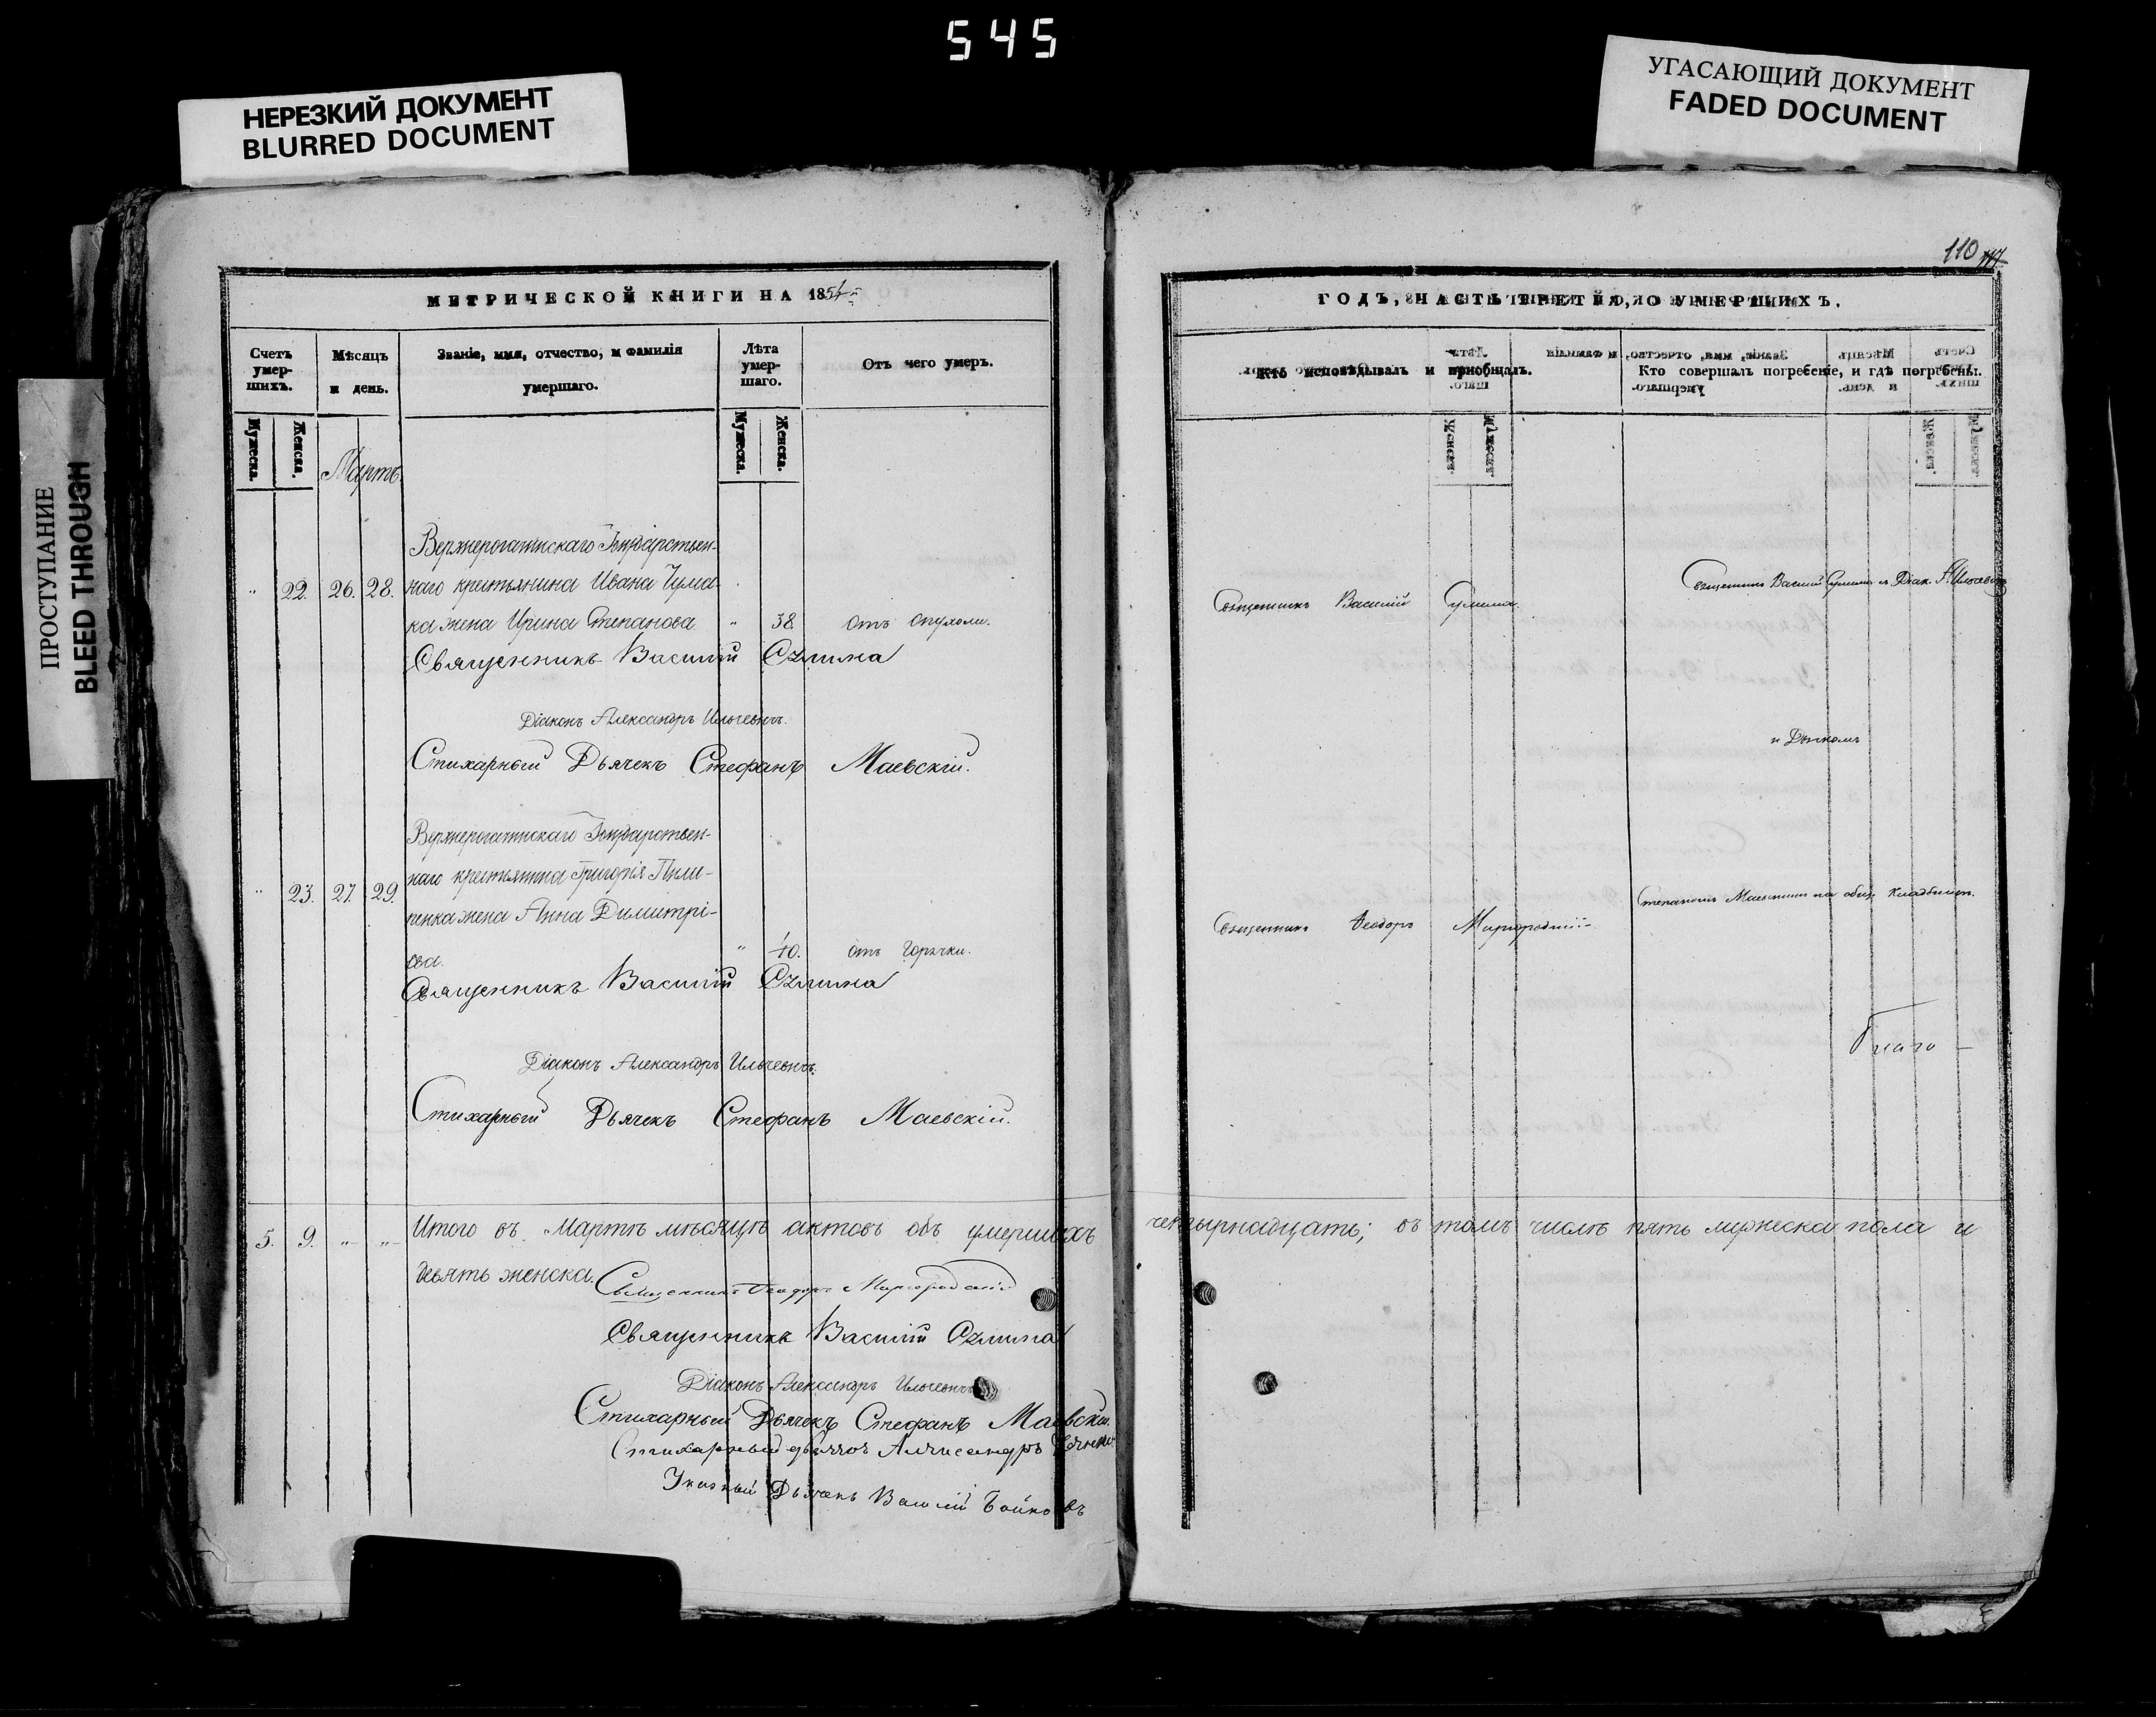 545
НЕРЕЗКИЙ ДОКУМЕНТ
BLURRED DOCUMENT
УГАСАЮЩИЙ ДОКУМЕНТ
FADED DOCUMENT
ПРОСТУПАНИЕ
BLEED THROUGH
110
МЕТРИЧЕСКОЙ КНИГИ НА 1854
ГОДЪ, ЧАСТЬ ТРЕТІЯ, О УМЕРШИХЪ.
Счетъ умер-шихъ.
Мѣсяцъ и день.
Званіе, имя, отчество, и фамилія умершаго.
Лѣта умер-шаго.
Отъ чего умеръ.
Кто исповѣдывалъ и пріобщалъ.
Кто совершалъ погребеніе, и гдѣ погребены.
Мужеска.
Женска.
Мужеска.
Женска.
Мартъ.
Верхнерогачинскаго Государствен-
" 22. 26. 28. наго крестьянина Ивана Чума-
ка жена Ирина Степанова " 38 отъ опухоли.
Священникъ Василій Сулима.
Священникъ Василій Сулима и Діак. А. Ильчевичъ
Священникъ Василій Сулима
Діаконъ Александръ Ильчевичъ.
Стихарный Дьячекъ Стефанъ Маевскій.
и Дьячкомъ
Верхнерогачинскаго Государствен-
" 23. 27. 29. наго крестьянина Григорія Пили-
пенка жена Анна Димитрі-
ева. " 40. отъ горячки.
Священникъ Феодоръ Миргородскій
Степаномъ Маевскимъ на общ. кладбищѣ.
Священникъ Василій Сулима
Діаконъ Александръ Ильчевичъ.
Стихарный Дьячекъ Стефанъ Маевскій.
Благо
5. 9. " " Итого въ Мартѣ мѣсяцѣ актовъ объ умершихъ четырнадцать; въ томъ числѣ пять мужеска пола и
девять женска.
Священникъ Феодоръ Миргородскій
Священникъ Василій Сулима
Діаконъ Александръ Ильчевичъ
Стихарный Дьячекъ Стефанъ Маевскій.
Стихарный дьячокъ Александръ
Указный Дьячекъ Василій Бойковъ